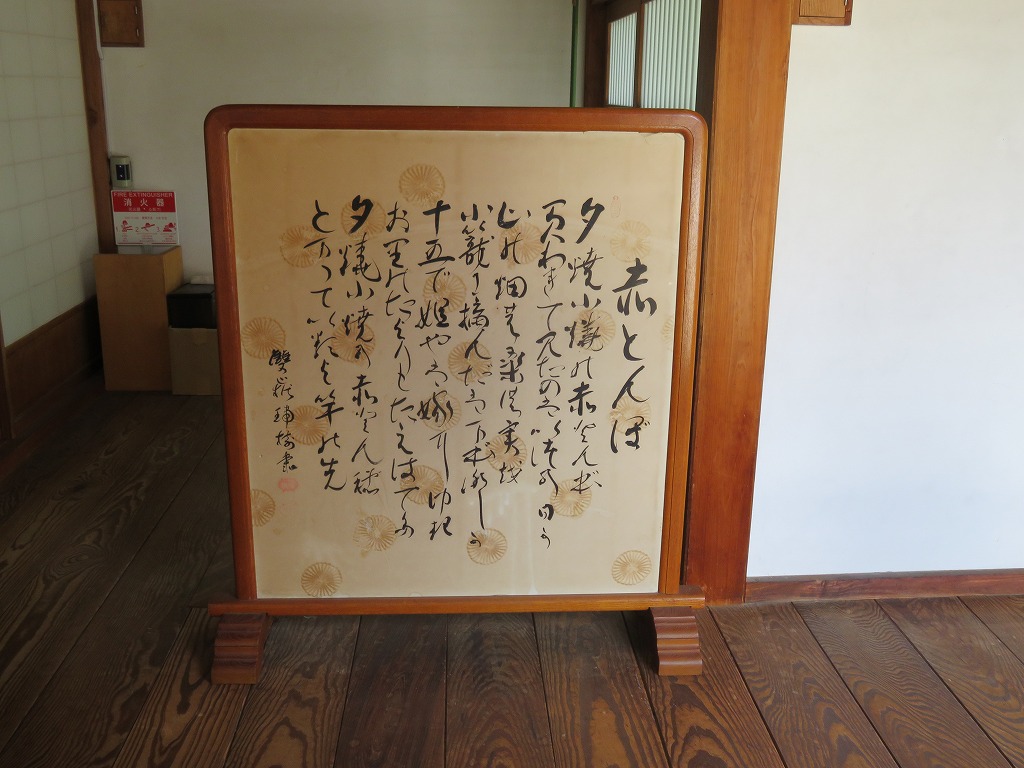 赤とんぼ
夕焼小焼の赤とんぼ
負われて見たのはいつの日か
山の畑の桑の実を
小籠に摘んだはまぼろしか
十五で姐やは嫁にゆき
お里のたよりもたえはてた
夕焼小焼の赤とんぼ
とまっているよ竿の先
FIRE EXTINGUISHER
消火器